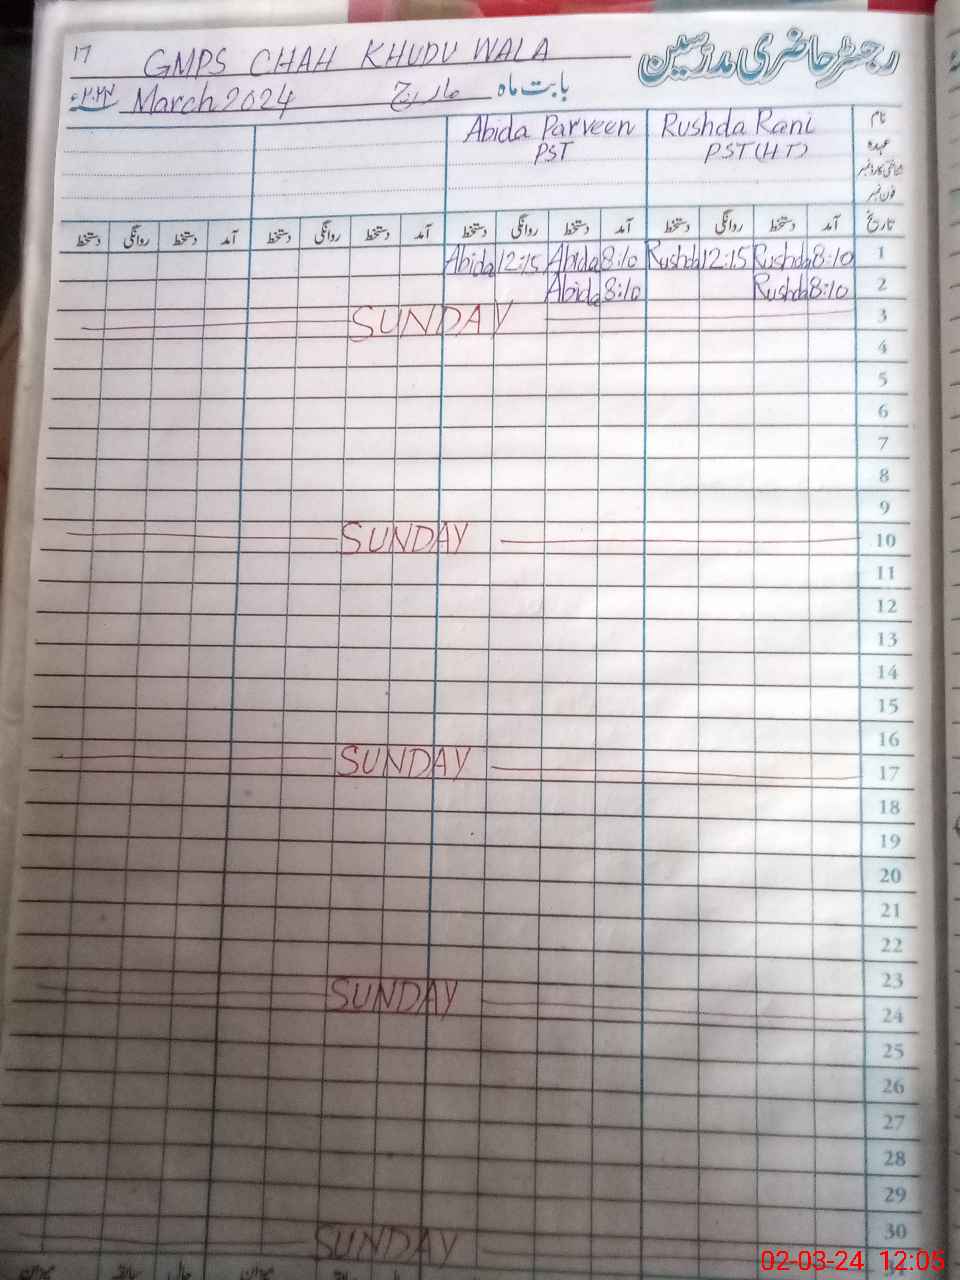 ۱۷ GMPS CHAH KHUDU WALA رجسٹر حاضری مدرسین
۲۰۲۴ء March 2024 مارچ بابت ماہ
Abida Parveen Rushda Rani نام
PST PST (HT) عہدہ
شناختی کارڈ نمبر
فون نمبر
دستخط روانگی دستخط آمد دستخط روانگی دستخط آمد دستخط روانگی دستخط آمد دستخط روانگی دستخط آمد تاریخ
Abida 12:15 Abida 8:10 Rushda 12:15 Rushda 8:10 1
Abida 8:10 Rushda 8:10 2
SUNDAY 3
4
5
6
7
8
9
SUNDAY 10
11
12
13
14
15
16
SUNDAY 17
18
19
20
21
22
23
SUNDAY 24
25
26
27
28
29
30
SUNDAY
02-03-24 12:05